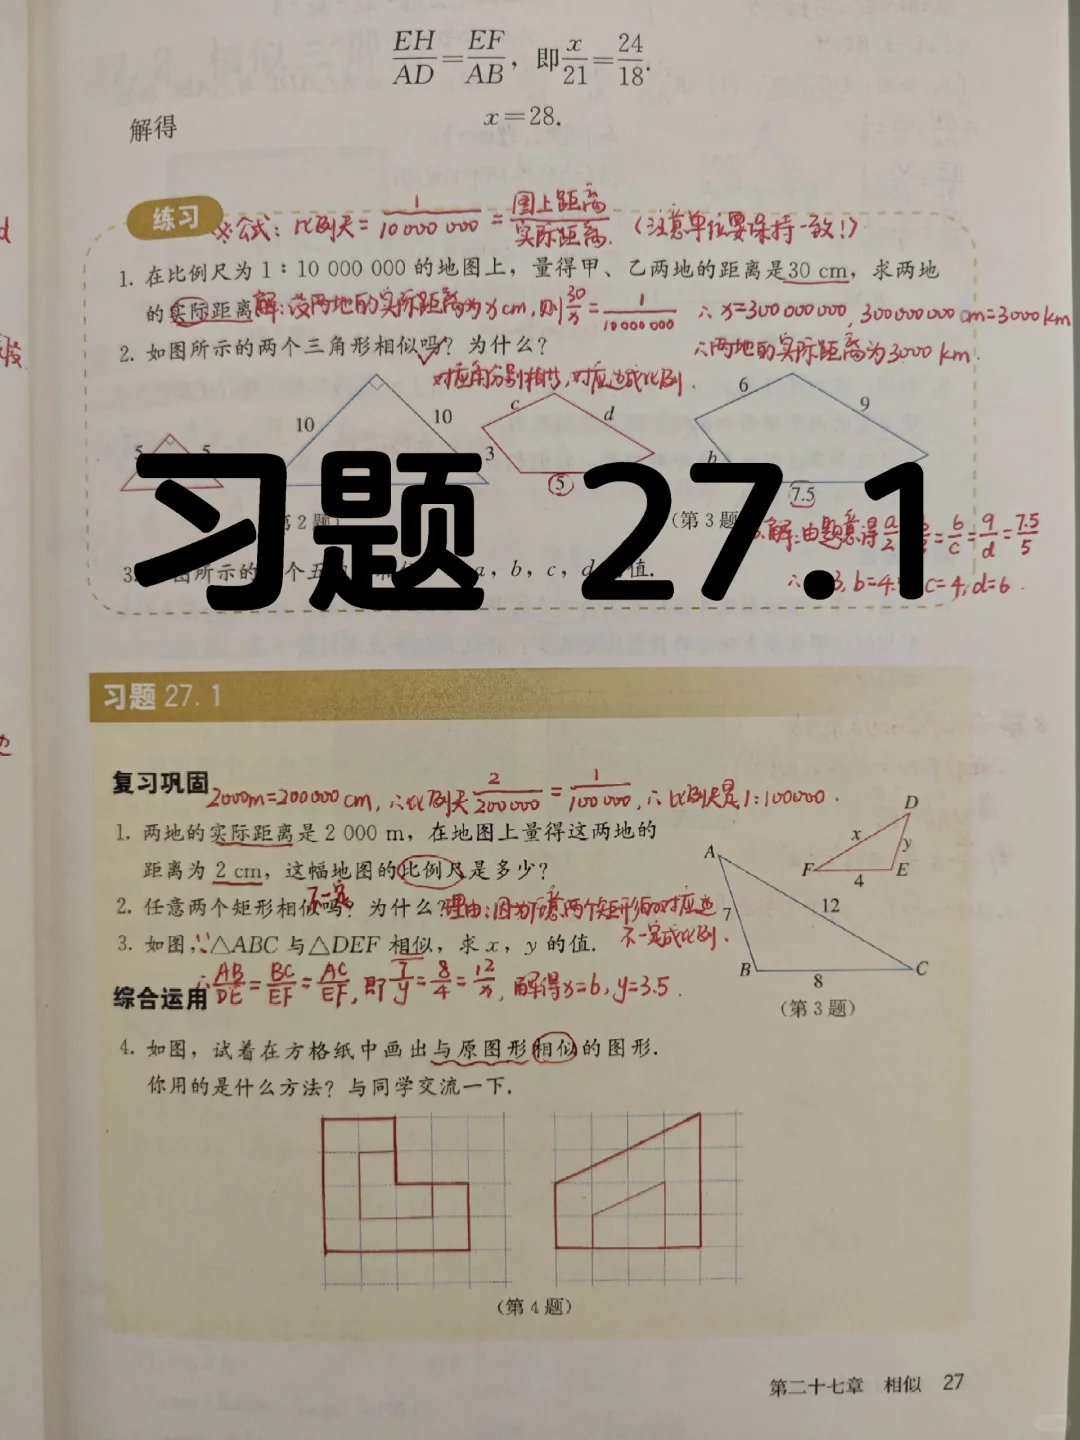 EH/AD=EF/AB，即x/21=24/18.
解得 x=28.
练习
※公式：比例尺=1/10000000=图上距离/实际距离.（注意单位要保持一致！）
1. 在比例尺为 1∶10 000 000 的地图上，量得甲、乙两地的距离是30 cm，求两地
的实际距离
解：设两地的实际距离为x cm，则30/x=1/10000000 ∴x=300000000，300000000cm=3000km
∴两地的实际距离为3000km.
2. 如图所示的两个三角形相似吗？为什么？
对应角分别相等，对应边成比例.
5 5
10 10
c d
3 5
6 9
b 7.5
第2题）
（第3题
习题 27.1
解：由题意得a/2 = 6/c=9/d=7.5/5
3, b=4. c=4, d=6.
3. 图所示的 个五 a，b，c，d 值.
习题 27.1
复习巩固
2000m=200000cm，∴比例尺2/200000=1/100000，∴比例尺是1:100000.
1. 两地的实际距离是 2 000 m，在地图上量得这两地的
距离为 2 cm，这幅地图的比例尺是多少？
2. 任意两个矩形相似吗？为什么？
不一定
理由：因为任意两个矩形的对应边
不一定成比例.
3. 如图，∵△ABC 与△DEF 相似，求 x，y 的值.
∴AB/DE=BC/EF=AC/EF，即7/y=8/4=12/x，解得x=6，y=3.5.
D
x y
F 4 E
A
7 12
B 8 C
（第3题）
综合运用
4. 如图，试着在方格纸中画出与原图形相似的图形.
你用的是什么方法？与同学交流一下.
（第4题）
第二十七章 相似 27